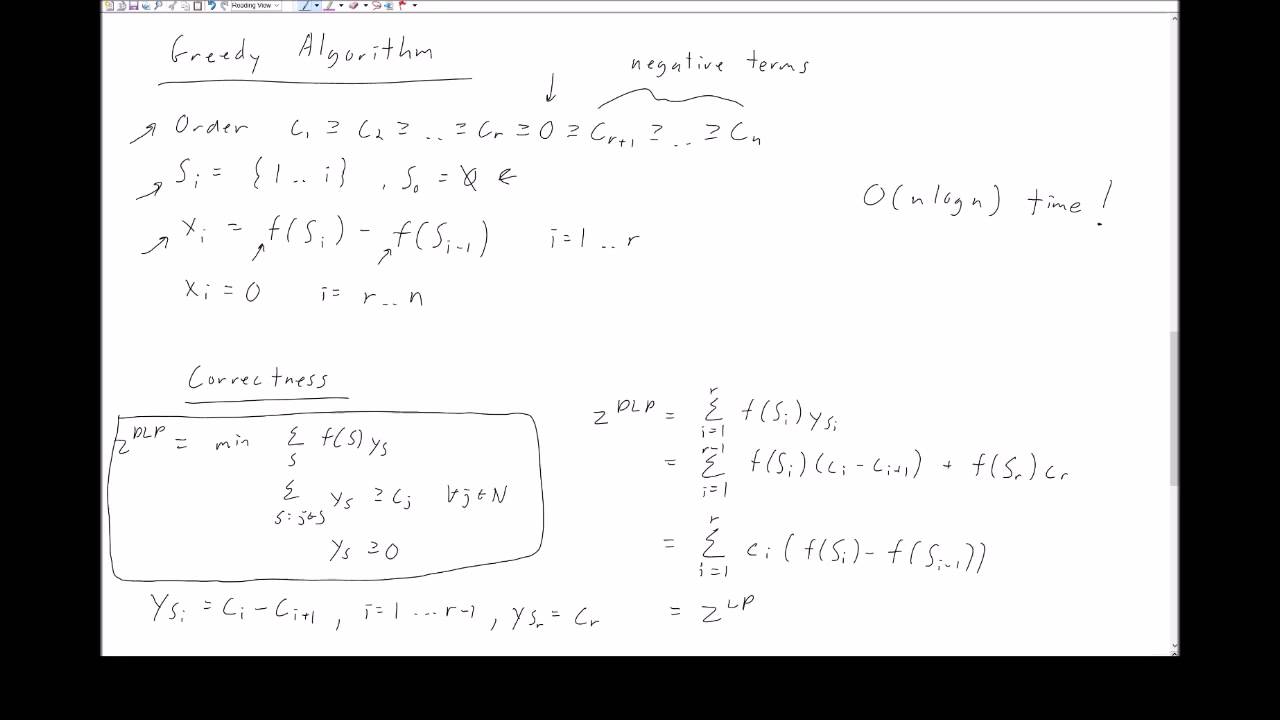 Reading View
Greedy Algorithm
negative terms
Order C₁ ≥ C₂ ≥ .. ≥ Cᵣ ≥ 0 ≥ Cᵣ₊₁ ≥ .. ≥ Cₙ
Sᵢ = {1 .. i} , S₀ = ∅ ←
O(n log n) time!
xᵢ = f(Sᵢ) - f(Sᵢ₋₁) i = 1 .. r
xᵢ = 0 i = r .. n
Correctness
z^DLP = min Σ_S f(S) y_S
Σ_{S: j∈S} y_S ≥ Cⱼ ∀ j ∈ N
y_S ≥ 0
y_{Sᵢ} = Cᵢ - Cᵢ₊₁ , i = 1 ... r-1 , y_{Sᵣ} = Cᵣ
z^DLP = Σ_{i=1}^{r} f(Sᵢ) y_{Sᵢ}
= Σ_{i=1}^{r-1} f(Sᵢ)(Cᵢ - Cᵢ₊₁) + f(Sᵣ) Cᵣ
= Σ_{i=1}^{r} Cᵢ (f(Sᵢ) - f(Sᵢ₋₁))
= z^LP